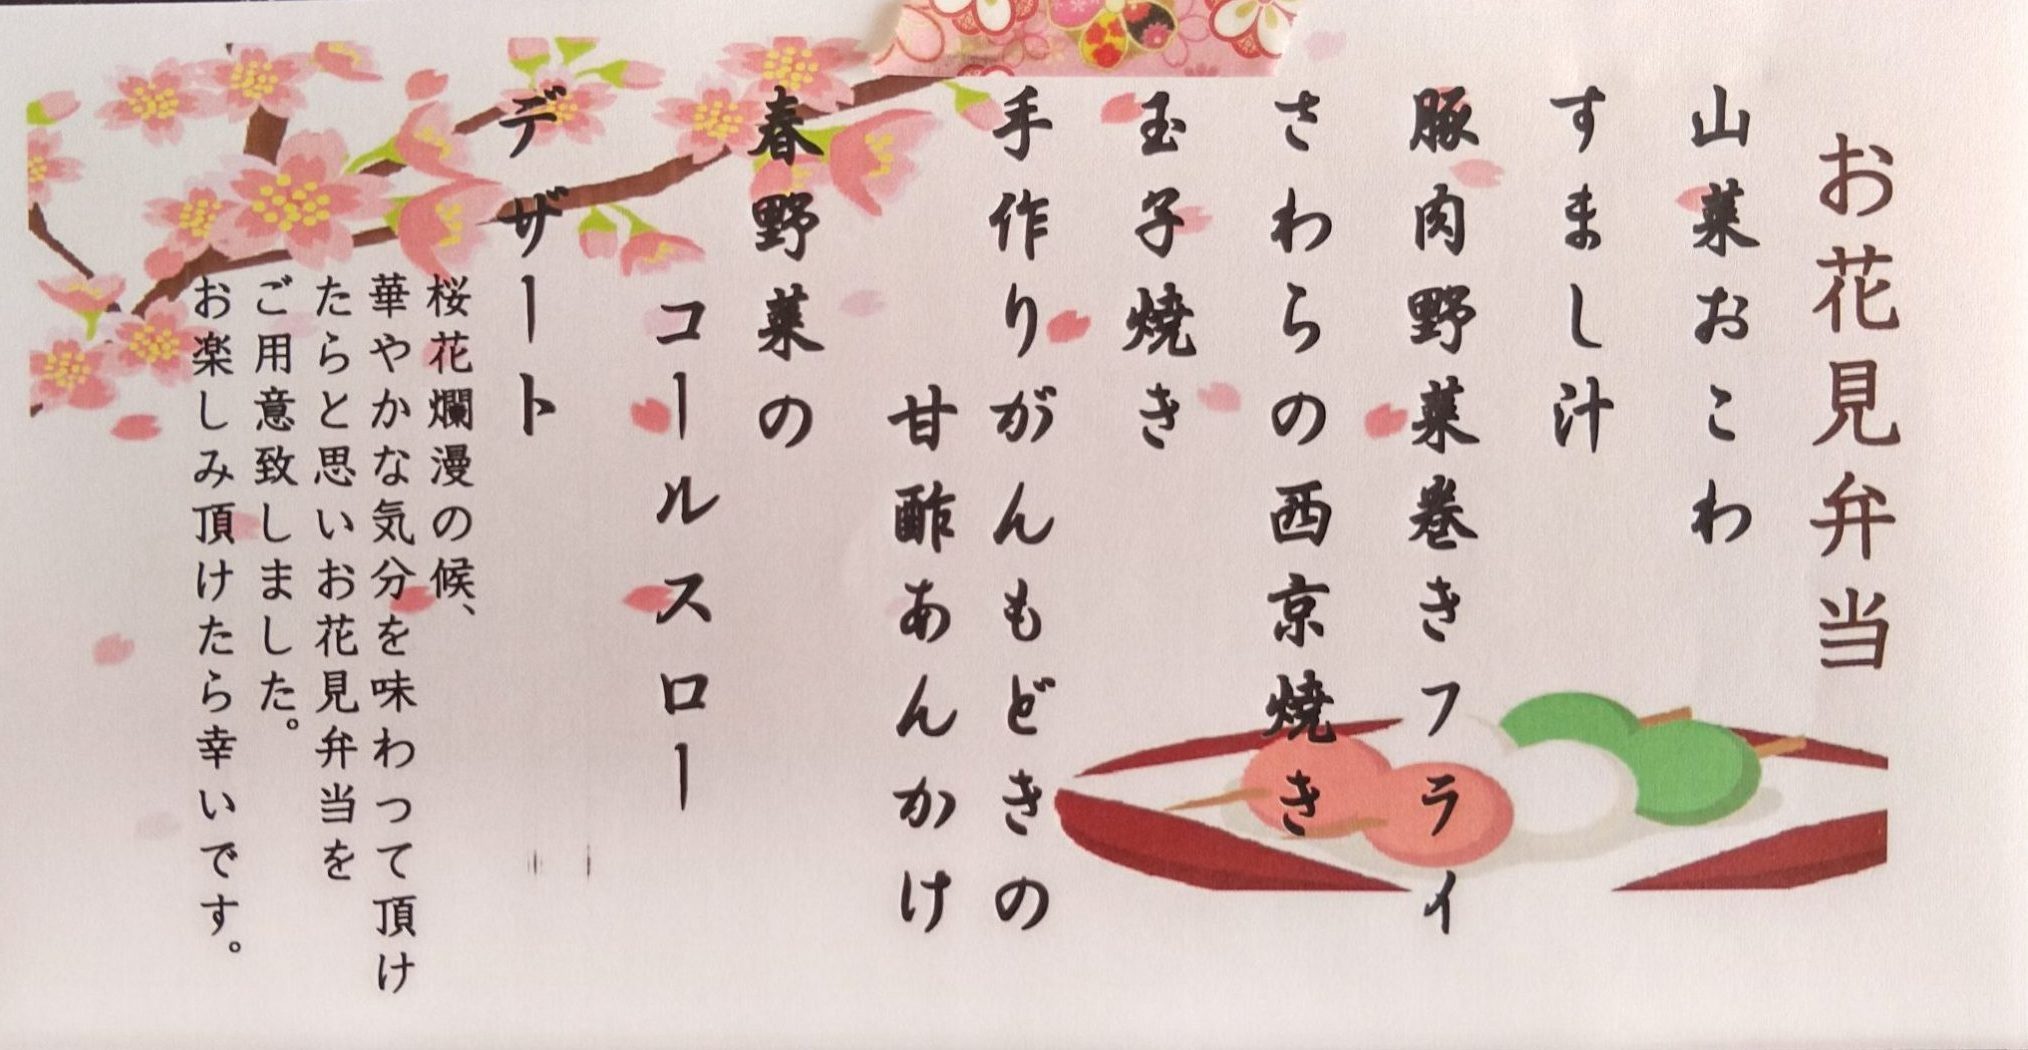 お花見弁当
山菜おこわ
すまし汁
豚肉野菜巻きフライ
さわらの西京焼き
玉子焼き
手作りがんもどきの
甘酢あんかけ
春野菜の
コールスロー
デザート
桜花爛漫の候、
華やかな気分を味わって頂け
たらと思いお花見弁当を
ご用意致しました。
お楽しみ頂けたら幸いです。